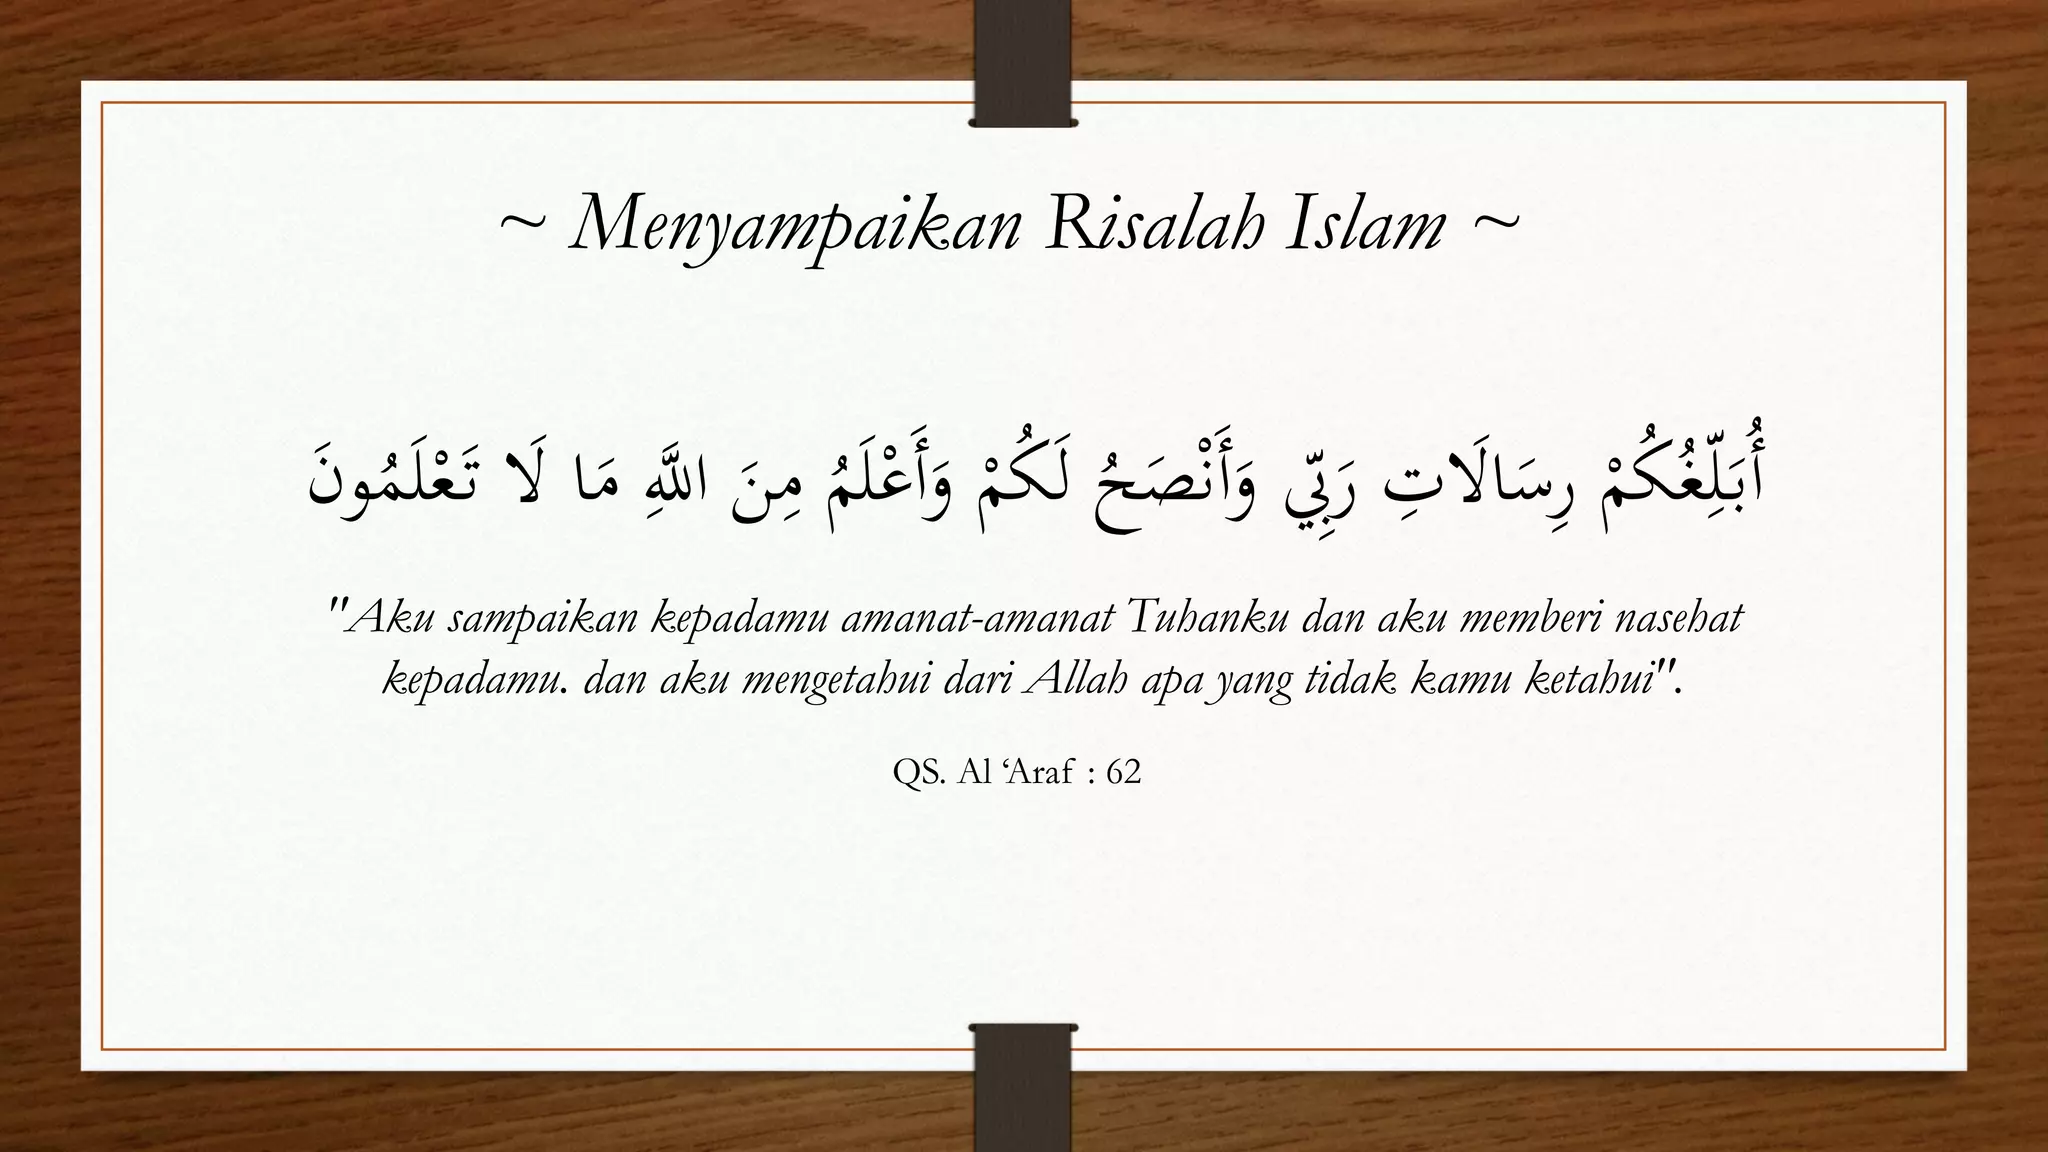 ~ Menyampaikan Risalah Islam ~
أُبَلِّغُكُمْ رِسَالَاتِ رَبِّي وَأَنْصَحُ لَكُمْ وَأَعْلَمُ مِنَ اللَّهِ مَا لَا تَعْلَمُونَ
"Aku sampaikan kepadamu amanat-amanat Tuhanku dan aku memberi nasehat
kepadamu. dan aku mengetahui dari Allah apa yang tidak kamu ketahui".
QS. Al ‘Araf : 62